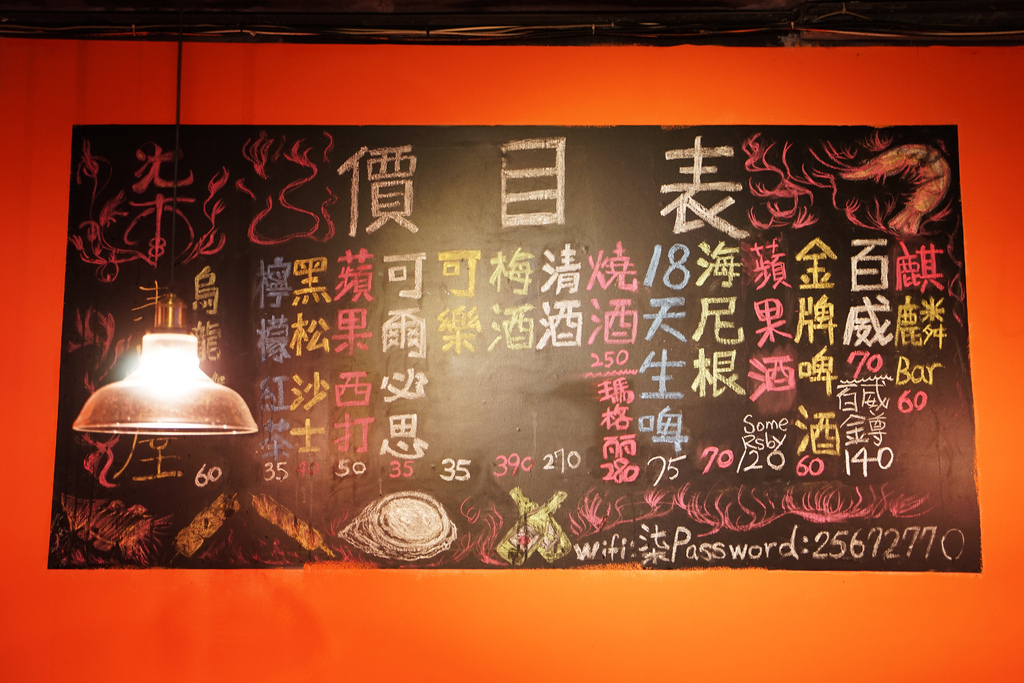 柒
價目表
麒麟Bar 60
百威 70
百威鐏 140
金牌啤酒 60
蘋果酒
Some
Rsby
120
海尼根 70
18天生啤 75
燒酒 250
瑪格丽 280
清酒 270
梅酒 390
可樂 35
可爾必思 35
蘋果西打 50
黑松沙士
檸檬紅茶 35
烏龍
60
wifi:柒Password:25672770